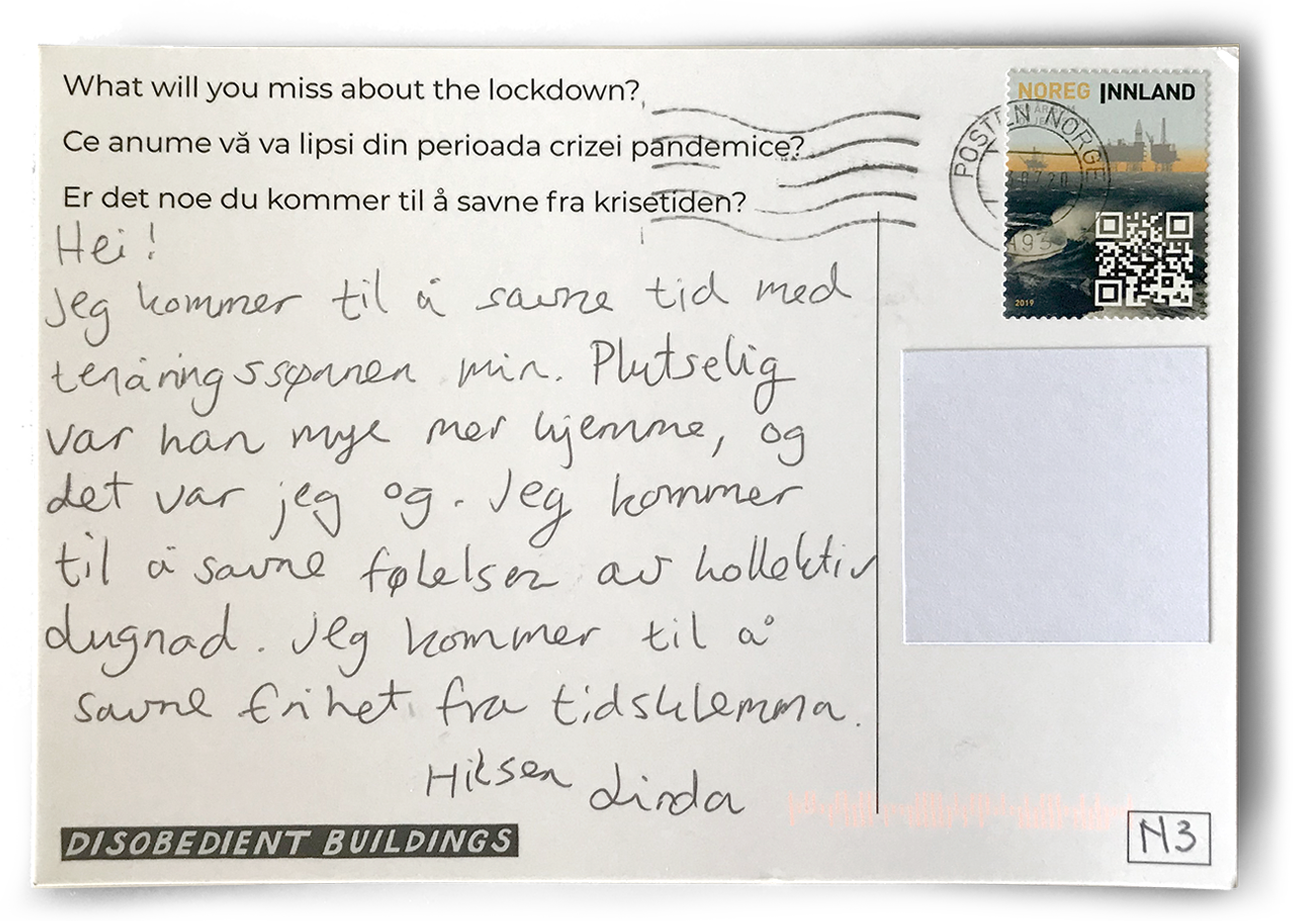 What will you miss about the lockdown?
Ce anume vă va lipsi din perioada crizei pandemice?
Er det noe du kommer til å savne fra krisetiden?
NOREG INNLAND
POSTEN NORGE
2019
Hei!
Jeg kommer til å savne tid med
tenåringssønnen min. Plutselig
var han mye mer hjemme, og
det var jeg og. Jeg kommer
til å savne følelsen av kollektiv
dugnad. Jeg kommer til å
savne frihet fra tidsklemma.
Hilsen Linda
DISOBEDIENT BUILDINGS
N3